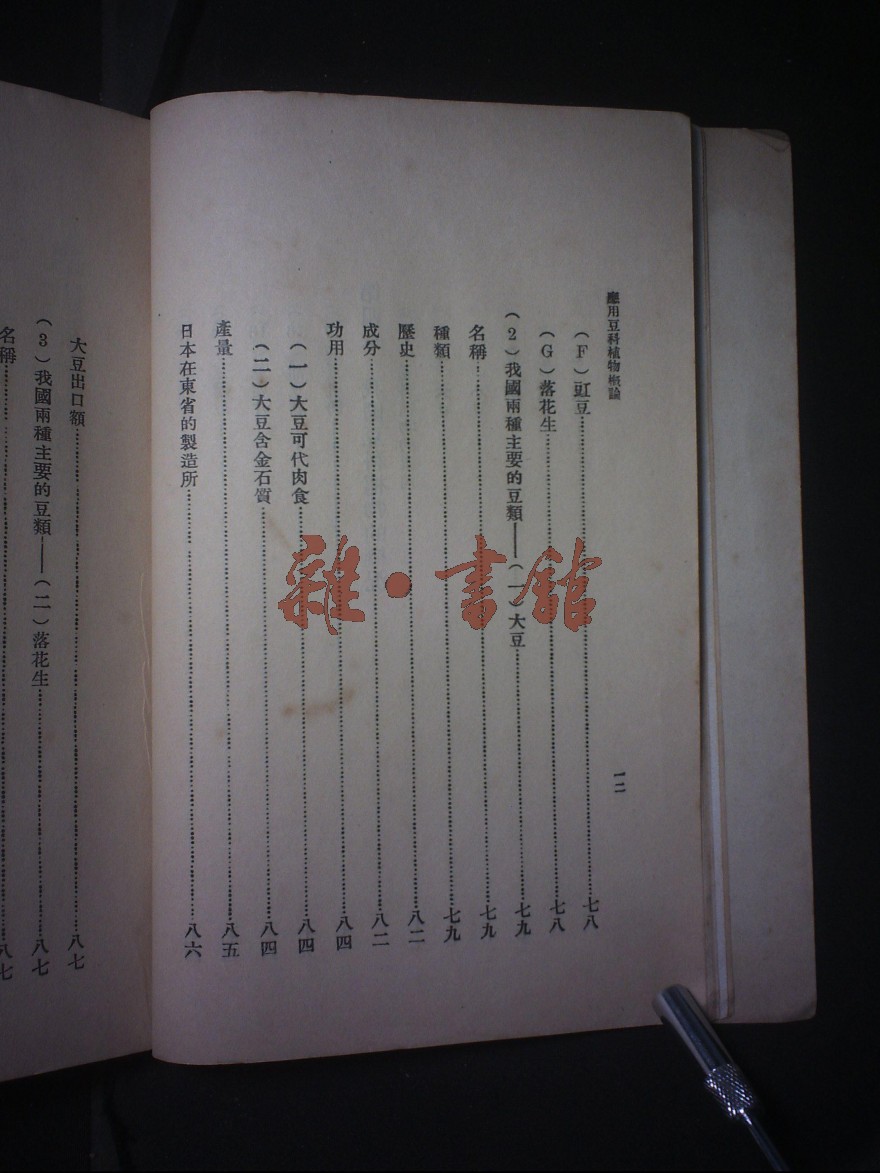 應用豆科植物概論
一二
(F)豇豆……七八
(G)落花生……七八
(2)我國兩種主要的豆類——(一)大豆……七九
名稱……七九
種類……七九
歷史……八二
成分……八二
功用……八四
(一)大豆可代肉食……八四
(二)大豆含金石質……八四
產量……八五
日本在東省的製造所……八六
大豆出口額……八七
(3)我國兩種主要的豆類——(二)落花生……八七
名稱……八七
雜·書館